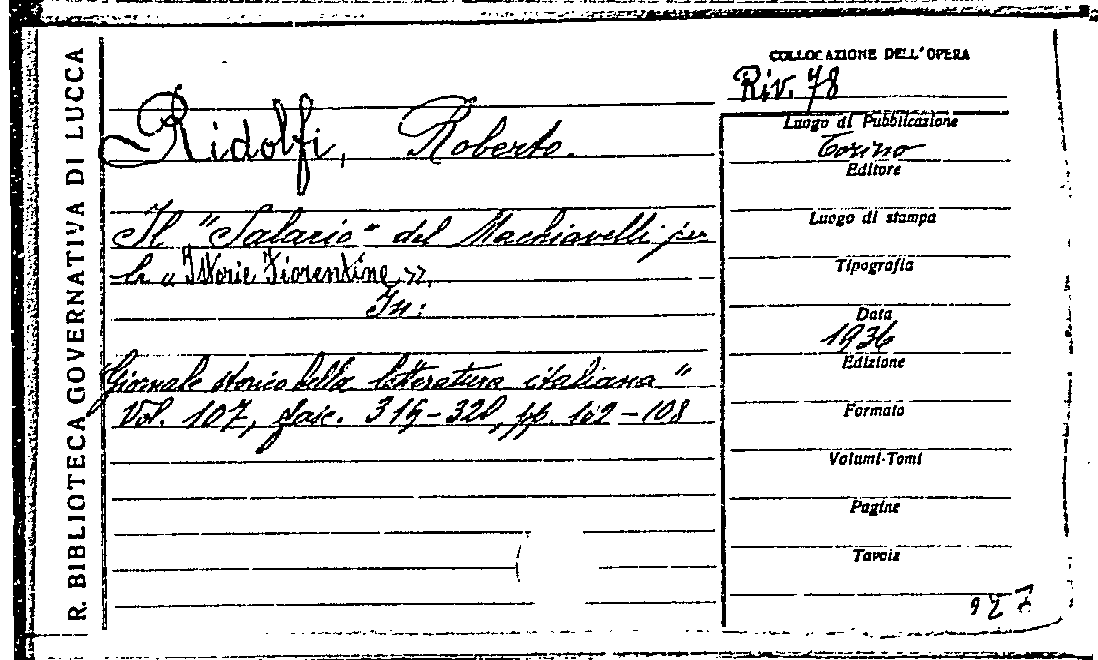 R. BIBLIOTECA GOVERNATIVA DI LUCCA
Ridolfi, Roberto.
Il "Salario" del Machiavelli per
le « Istorie Fiorentine ».
In:
Giornale storico della letteratura italiana"
Vol. 107, fasc. 319-320, pp. 102-108
COLLOCAZIONE DELL'OPERA
Riv. 78
Luogo di Pubblicazione
Torino
Editore
Luogo di stampa
Tipografia
Data
1936
Edizione
Formato
Volumi-Tomi
Pagine
Tavole
927